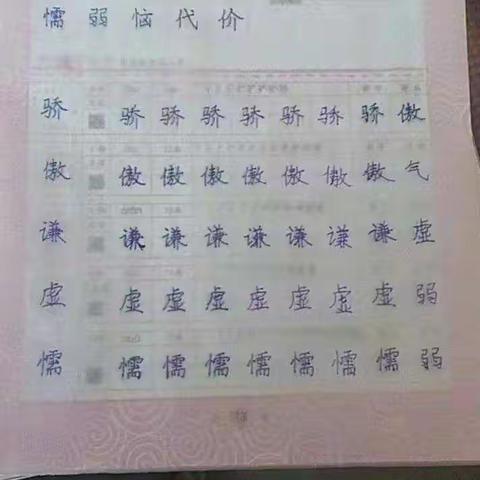 懦 弱 恼 代 价
骄 骄 骄 骄 骄 骄 骄 骄 傲
傲 傲 傲 傲 傲 傲 傲 傲 气
谦 谦 谦 谦 谦 谦 谦 谦 虚
虚 虚 虚 虚 虚 虚 虚 虚 弱
懦 懦 懦 懦 懦 懦 懦 懦 弱